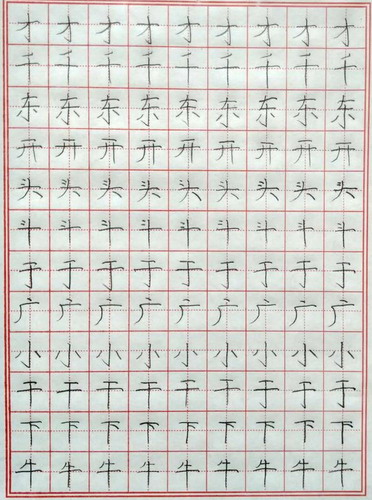 才才才才才才才才才
千千千千千千千千千
东东东东东东东东东
开开开开开开开开开
头头头头头头头头头
斗斗斗斗斗斗斗斗斗
于于于于于于于于于
广广广广广广广广广
小小小小小小小小小
干干干干干干干干于
下下下下下下下下下
牛牛牛牛牛牛牛牛牛